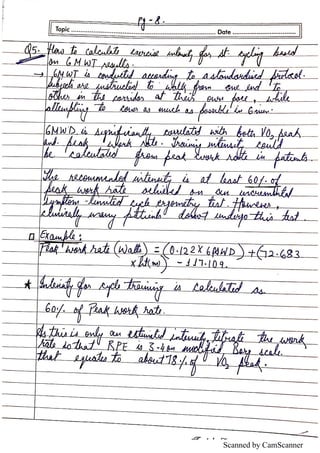 Pg-8.
Topic
Date
Q5. How to calculate exercise intensity for st. cycling based
on 6MWT results.
→ 6MWT is conducted according to a standardised protocol.
Subjects are instructed to walk from one end to
other in the corridor at their own pace, while
attempting to cover as much as possible in 6min.
6MWD is significantly correlated with both VO2 peak
and peak work rate. Training intensity could
be calculated from peak work rate in patients.
The recommended intensity is at least 60% of
peak work rate achieved on an incremental
symptom-limited cycle ergometry test. However,
clinically many patients do not undergo this test.
Example:
Peak work rate (Watts) = (0.122 X 6MWD) + (72.683
x ht(m)) - 117.109.
* Intensity for cycle training is calculated as
60% of Peak work rate.
As this is only an estimated intensity, titrate the work
rate so that RPE is 3-4 on modified Borg scale
that equates to about 78% of VO2 peak.
Scanned by CamScanner